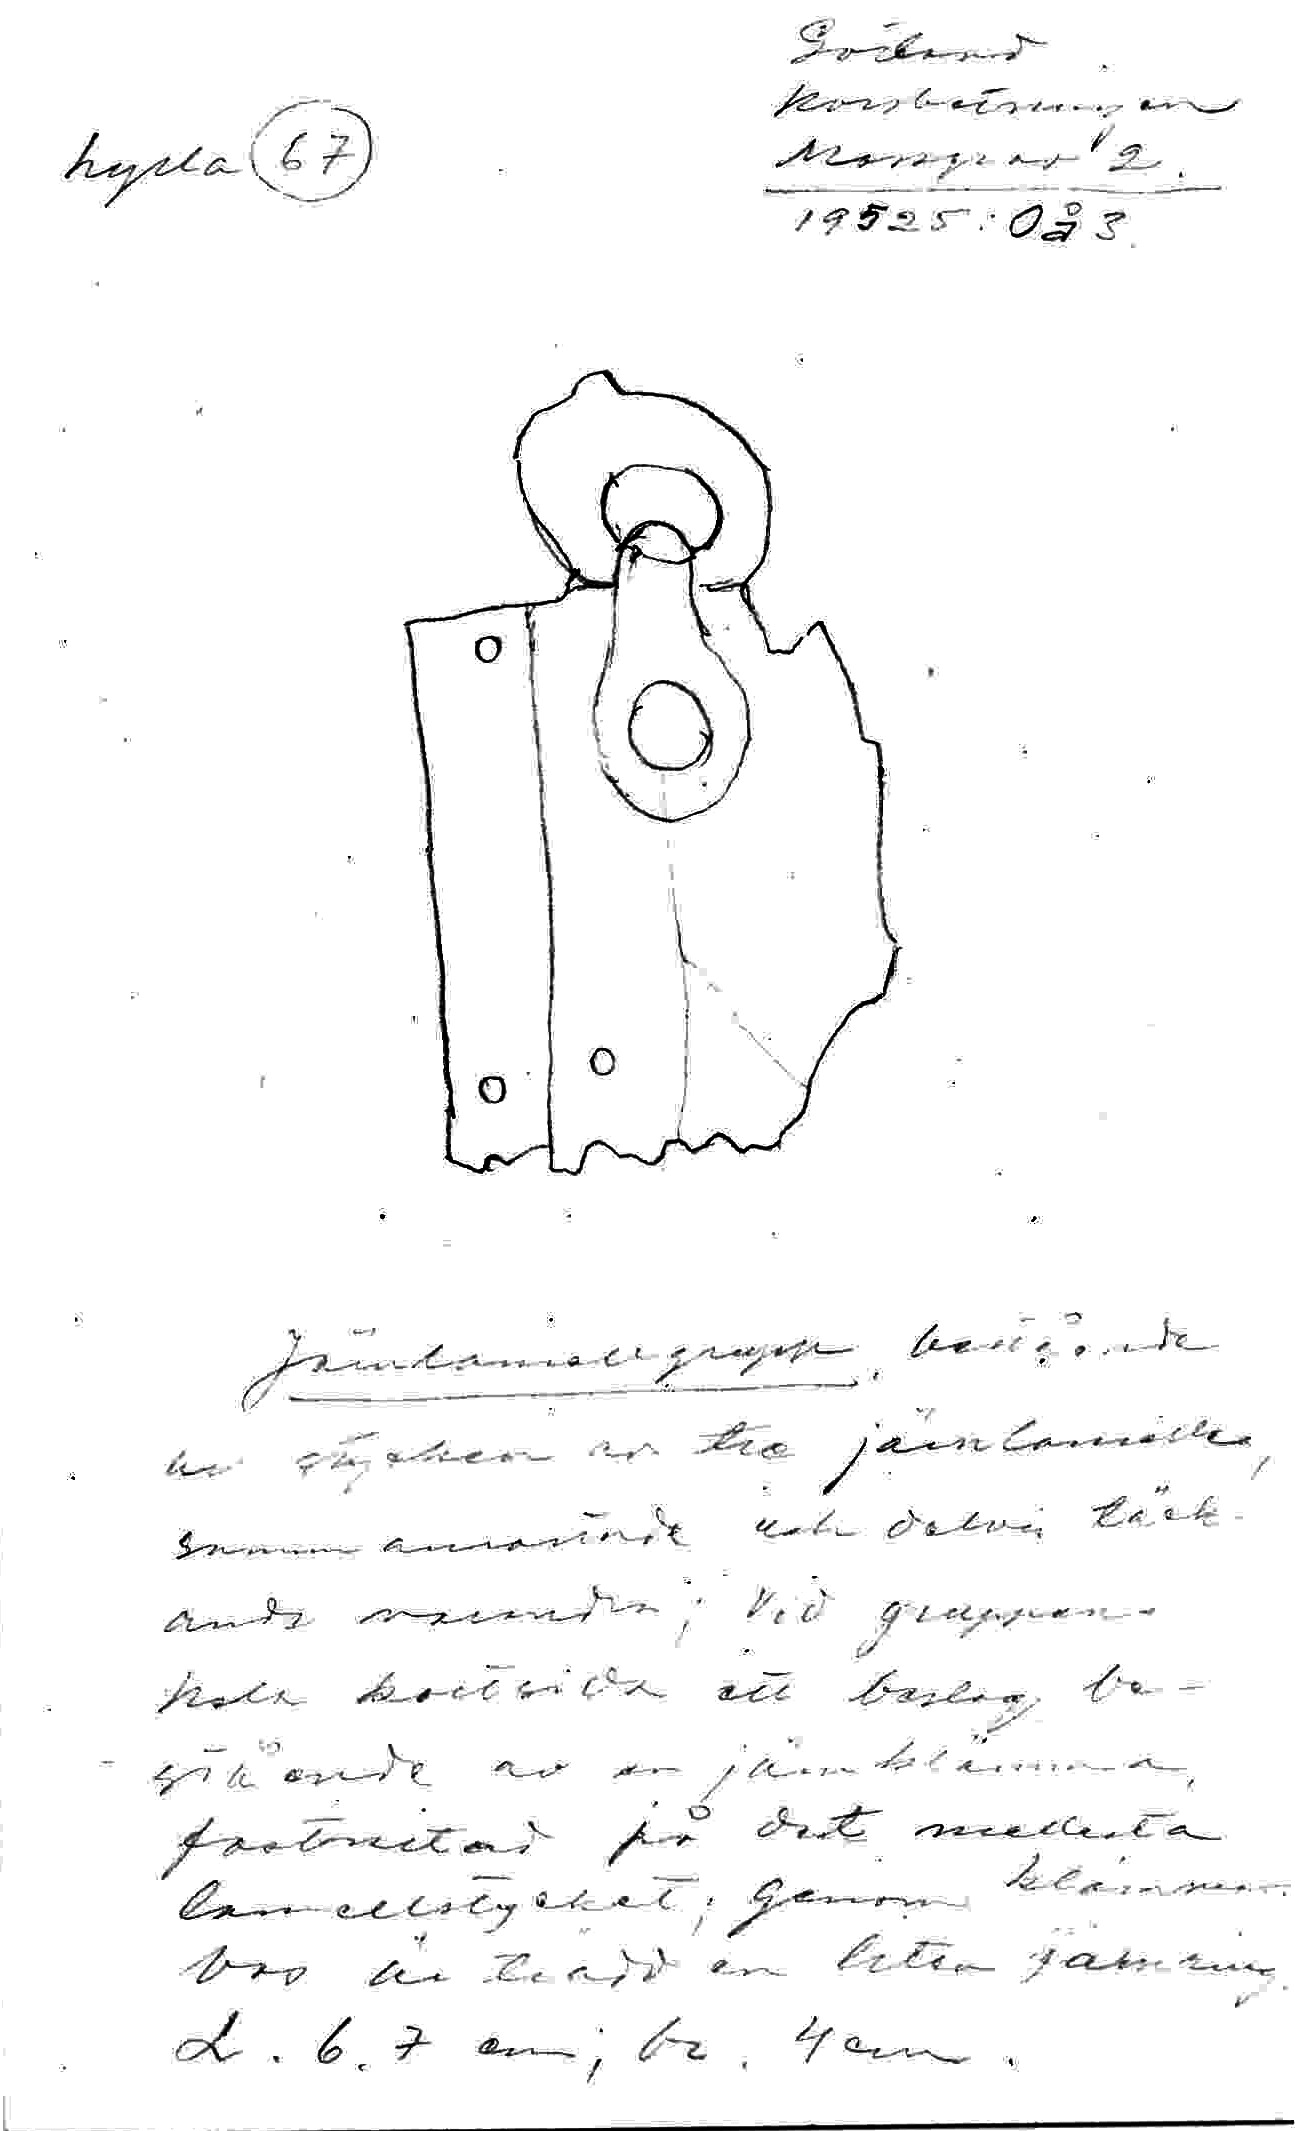 Gotland
Korsbetningen
Massgrav 2.
hylla 67
19525:Oå3.
Järnlamellgrupp, bestående
av stycken av tre järnlameller,
sammanrostade och delvis täck-
ande varandra; Vid gruppens
hela kortsida ett beslag be-
stående av en järnklämma,
fastnitad på det mellersta
lamellstycket; Genom klämmans
är trädd en liten järnring.
L. 6.7 cm; br. 4 cm.